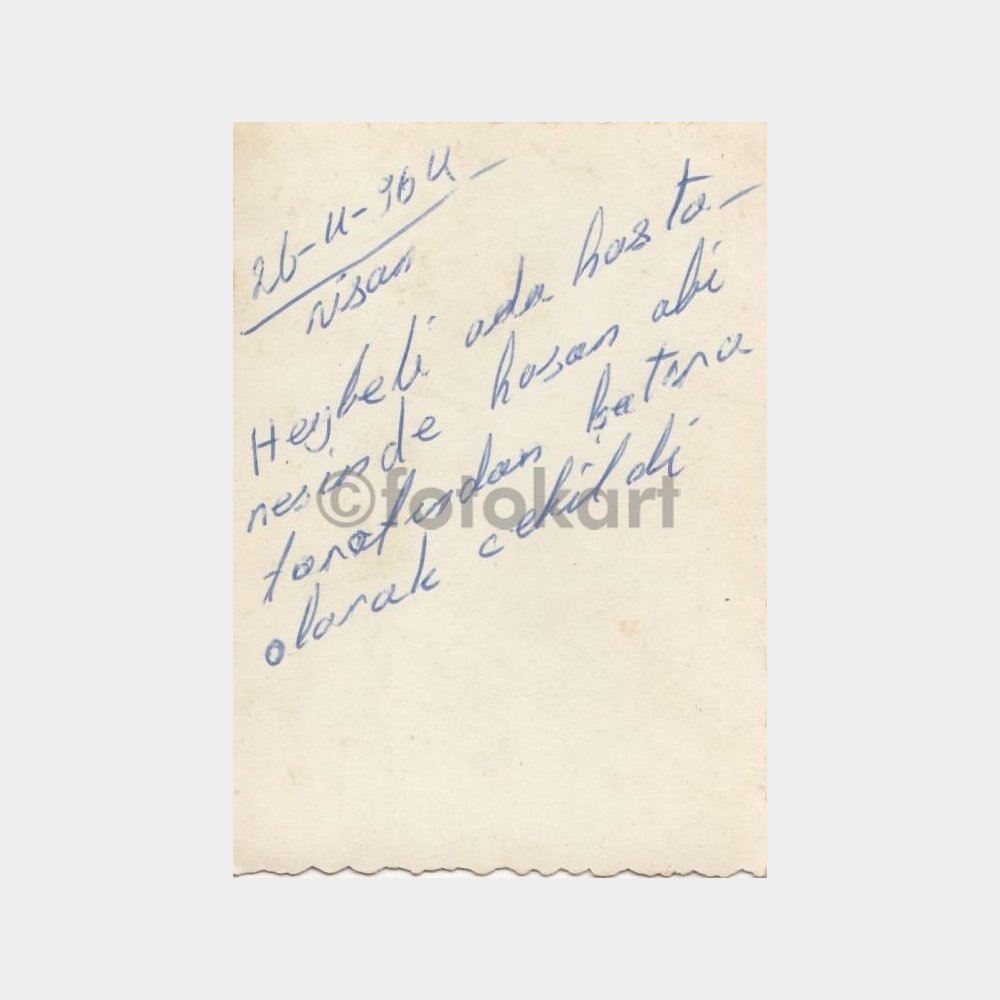 26-4-964
nisan
Heybeli ada hasta-
nesinde hasan abi
tarafından hatıra
olarak cekildi
©fotokart